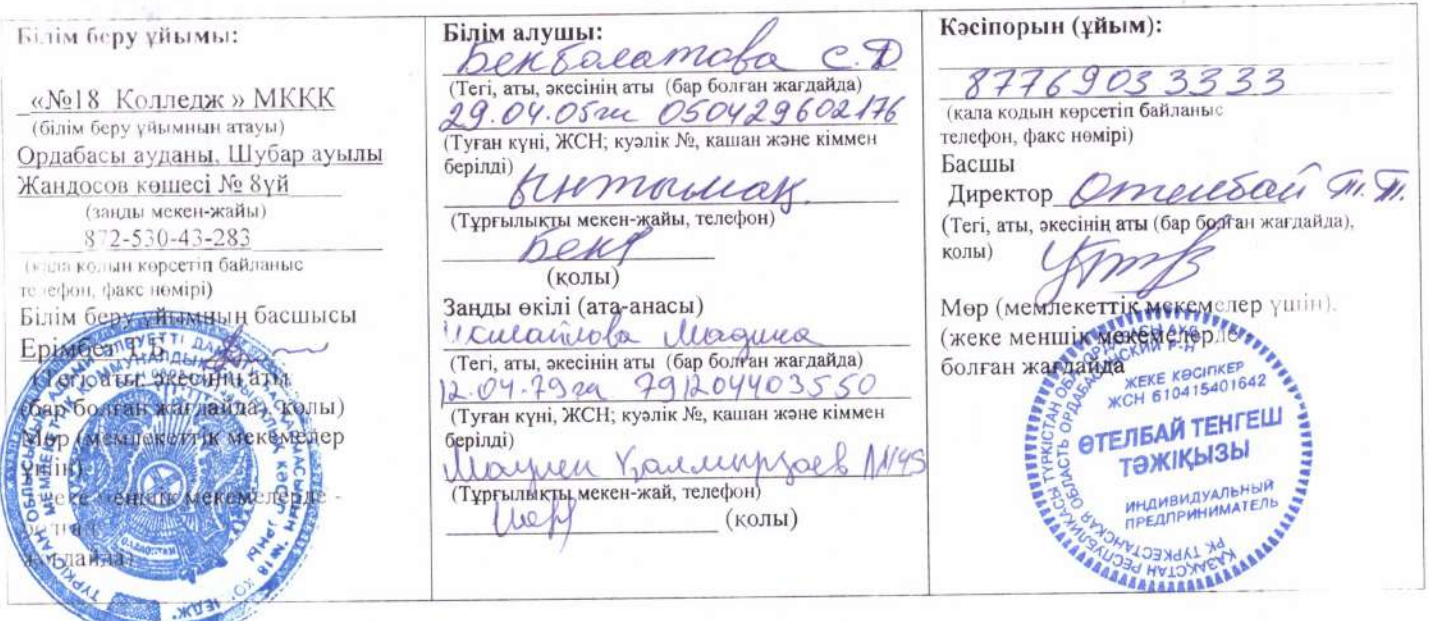 Білім беру ұйымы:
«№18 Колледж » МКҚК
(білім беру ұйымның атауы)
Ордабасы ауданы, Шубар ауылы
Жандосов көшесі № 8үй
(заңды мекен-жайы)
872-530-43-283
(қала кодын көрсетіп байланыс
телефон, факс нөмірі)
Білім беру ұйымның басшысы
Ерімбет Т.Б.
(Тегі, аты, әкесінің аты
(бар болған жағдайда), қолы)
Мөр (мемлекеттік мекемелер
үшін)
(жеке меншік мекемелерде -
болған
жағдайда)
Білім алушы:
Бекболатова С.Д
(Тегі, аты, әкесінің аты (бар болған жағдайда)
29.04.05ж 050429602176
(Туған күні, ЖСН; куәлік №, қашан және кіммен
берілді)
Ынтымақ.
(Тұрғылықты мекен-жайы, телефон)
Бек
(қолы)
Заңды өкілі (ата-анасы)
Исмайлова Мадина
(Тегі, аты, әкесінің аты (бар болған жағдайда)
12.04.79га 791204403550
(Туған күні, ЖСН; куәлік №, қашан және кіммен
берілді)
Маулен Қалмырзаев №49
(Тұрғылықты мекен-жай, телефон)
(қолы)
Кәсіпорын (ұйым):
87769033333
(қала кодын көрсетіп байланыс
телефон, факс нөмірі)
Басшы
Директор Өтелбай Т.Т.
(Тегі, аты, әкесінің аты (бар болған жағдайда),
қолы)
Мөр (мемлекеттік мекемелер үшін).
(жеке меншік мекемелерде
болған жағдайда
ЖЕКЕ КӘСІПКЕР
ЖСН 610415401642
ӨТЕЛБАЙ ТЕНГЕШ
ТӘЖІҚЫЗЫ
ИНДИВИДУАЛЬНЫЙ
ПРЕДПРИНИМАТЕЛЬ
ҚАЗАҚСТАН РЕСПУБЛИКАСЫ ТҮРКІСТАН ОБЛ
РК ТУРКЕСТАНСКАЯ ОБЛАСТЬ ОРДАБАСИНСКИЙ Р-Н